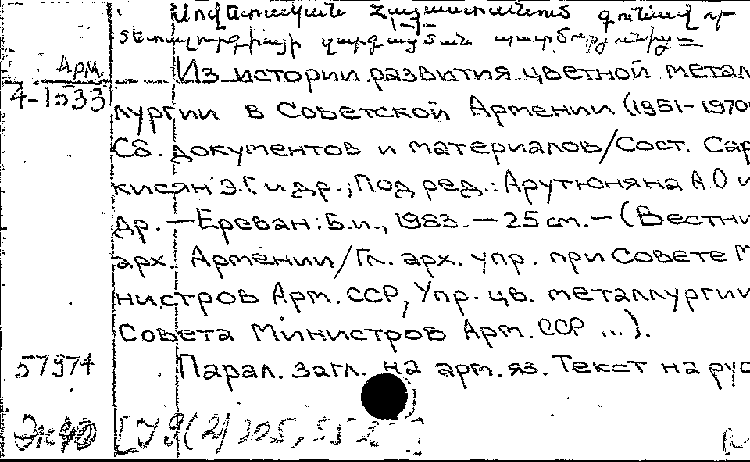 Սովետական Հայաստանում գունավոր
Арм. Из истории развития цветной метал
4-1533 лургии в Советской Армении (1951-1970
Сб. документов и материалов/Сост. Сар
кисян Э.Г. и др.; Под ред.: Арутюняна А.О и
др. — Ереван: Б.и., 1983. — 25 см. — (Вестни
арх. Армении/Гл. арх. упр. при Совете М
нистров Арм. ССР, Упр. цв. металлургии
Совета Министров Арм. ССР ...).
57974 Парал. загл. на арм. яз. Текст на рус
[У9(2)305,552]